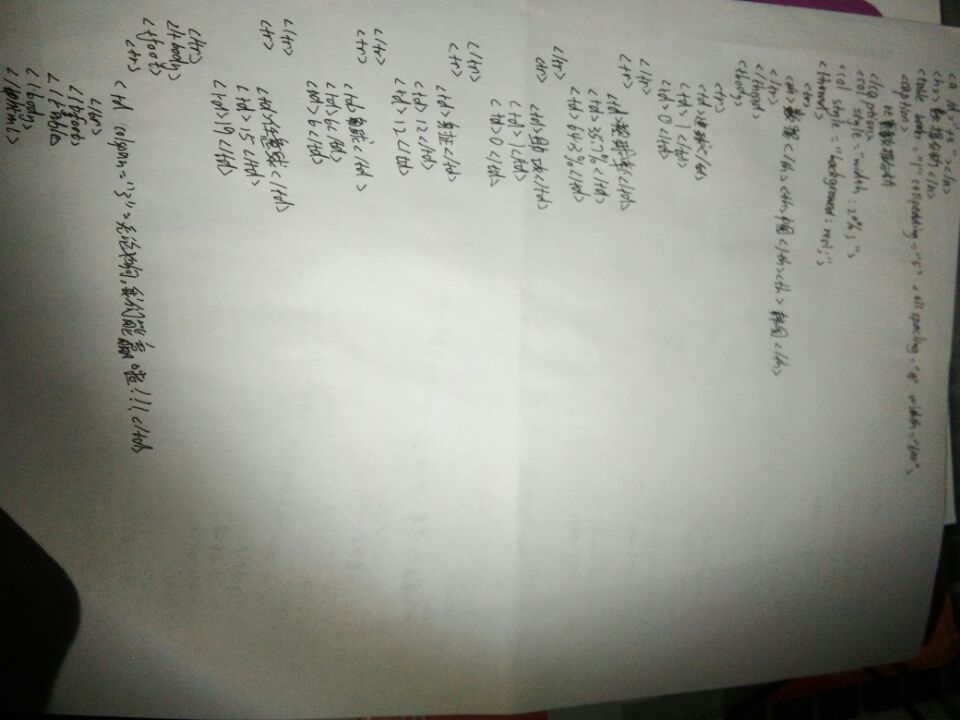 <a id="13"></a>
<h2>数据分析</h2>
<table border="1" cellpadding="5" cellspacing="0" width="600">
<caption>
比赛数据统计
</caption>
<col style="width:20%;">
<col style="background:red;">
<thead>
<tr>
<th>数据</th><th>中国</th><th>韩国</th>
</tr>
</thead>
<tbody>
<tr>
<td>进球</td>
<td>1</td>
<td>0</td>
</tr>
<tr>
<td>控球率</td>
<td>35.7%</td>
<td>64.3%</td>
</tr>
<tr>
<td>1</td>
<td>0</td>
</tr>
<tr>
<td>射正</td>
<td>12</td>
<td>12</td>
</tr>
<tr>
<td>角球</td>
<td>6</td>
</tr>
<tr>
<td>任意球</td>
<td>15</td>
<td>19</td>
</tr>
</tbody>
<tfoot>
<tr>
<td colspan="3">无论如何,我们能赢啦!!!</td>
</tr>
</tfoot>
</table>
</body>
</html>